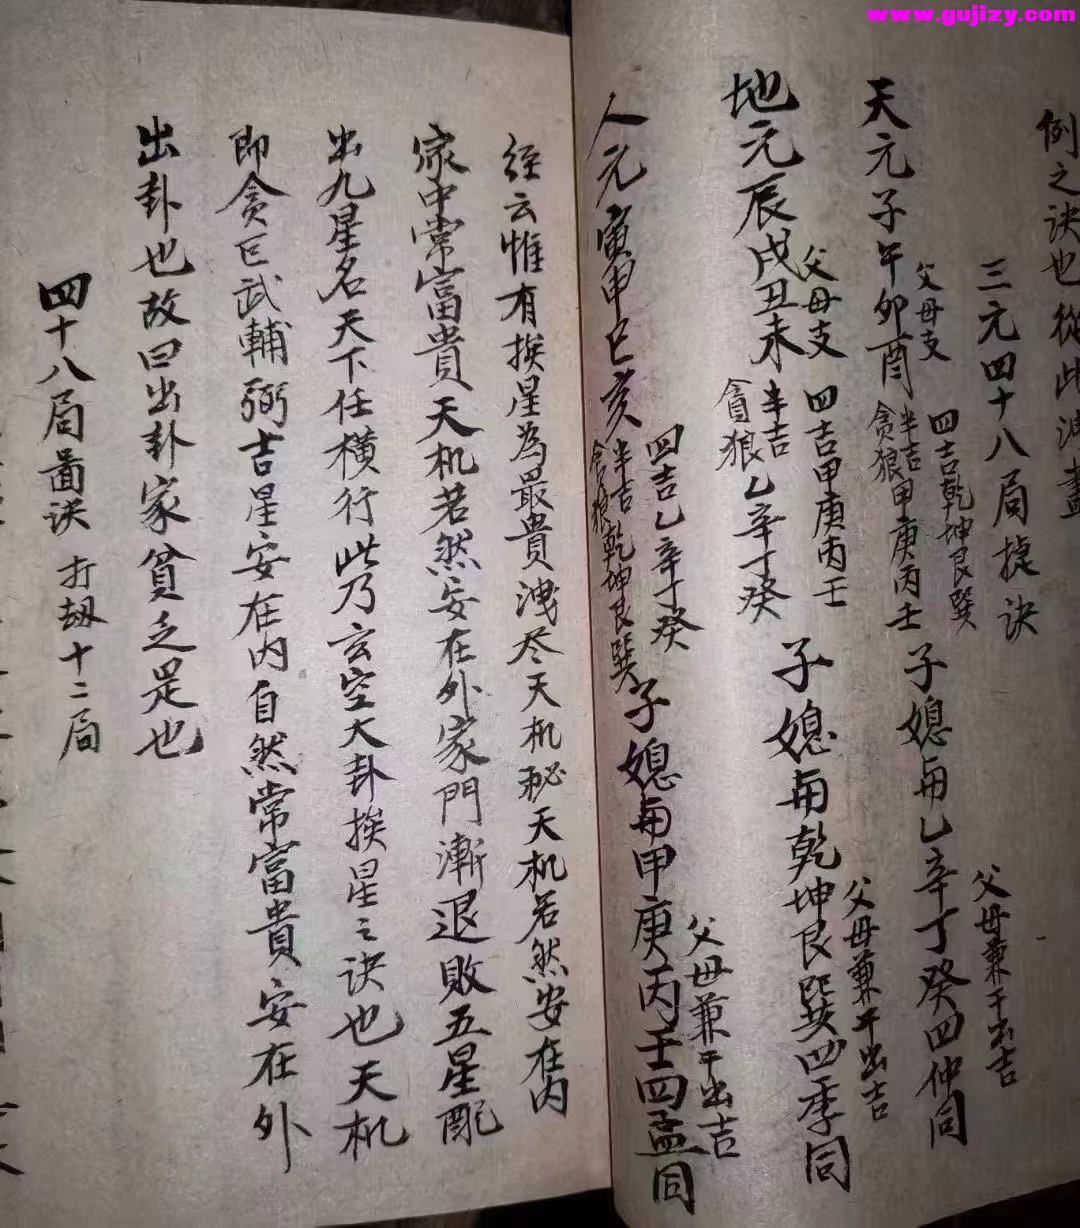 www.gujizy.com
例之诀也從此
三元四十八局捷诀
天元子午卯酉 父母支 半吉贪狼甲庚丙壬 四吉乾坤艮巽 子媳每乙辛丁癸四仲同 父母兼干出吉
地元辰戌丑未 父母支 半吉貪狼乙辛丁癸 四吉甲庚丙壬 子媳每乾坤艮巽四季同 父母兼干出吉
人元寅申巳亥 半吉貪狼乾坤艮巽 四吉乙辛丁癸 子媳每甲庚丙壬四孟同 父母兼干出吉
经云惟有挨星為最貴洩尽天机秘天机若然安在内
家中常富貴天机若然安在外家門漸退敗五星配
出九星名天下任横行此乃玄空大卦挨星之诀也天机
即贪巨武輔弼吉星安在内自然常富貴安在外
出卦也故曰出卦家貧乏是也
四十八局畐诀 打刼十二局